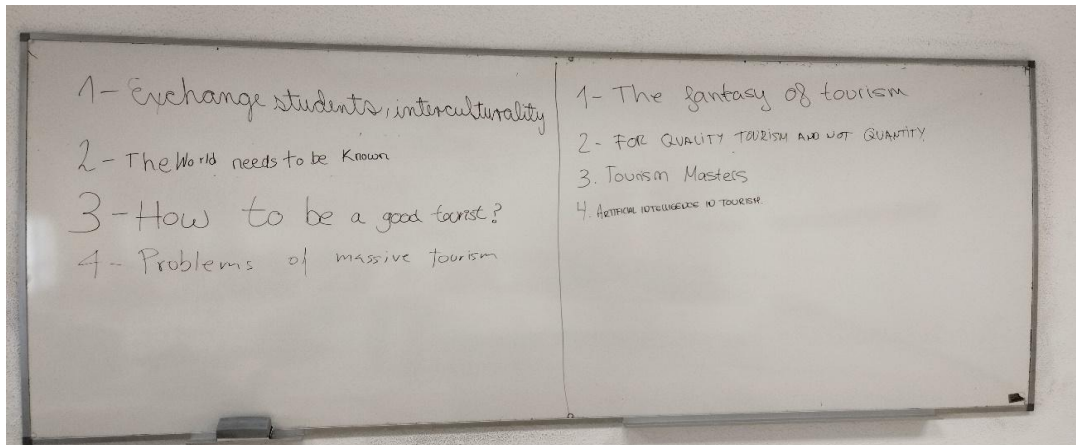 1- Exchange students, interculturality
2- The World needs to be Known
3- How to be a good tourist?
4- Problems of massive tourism
1- The fantasy of tourism
2- FOR QUALITY TOURISM AND NOT QUANTITY
3. Tourism Masters
4. ARTIFICIAL INTELLIGENCE IN TOURISM